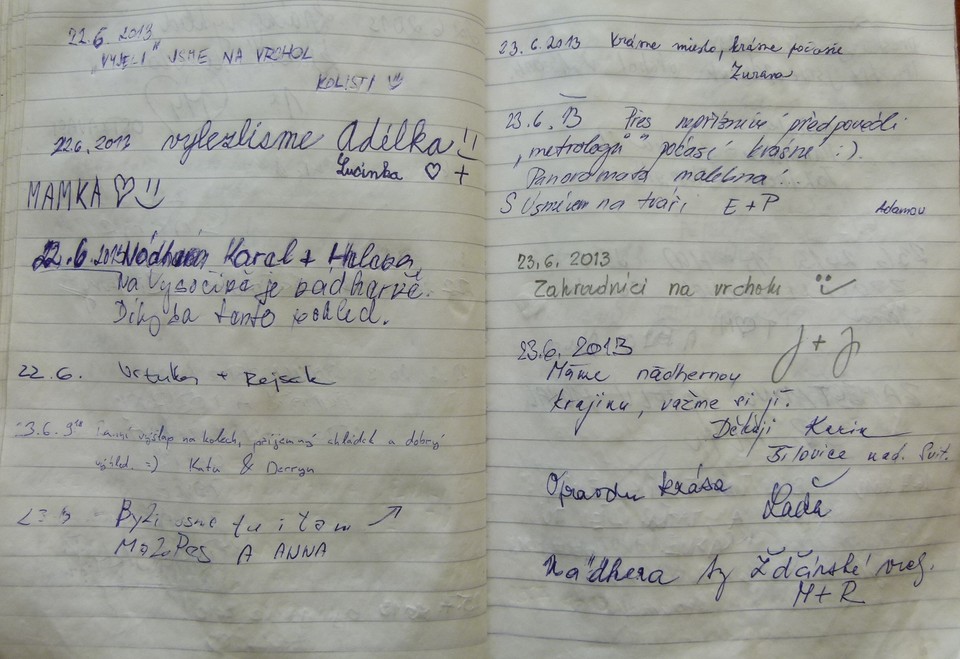 22.6 2013
„VYJELI" JSME NA VRCHOL
KOLISTI
22.6. 2013 vylezlisme Adélka
Lucinka ♡ +
MAMKA ♡
22.6 2013 Nádhera Karel + Helena
Na Vysočině je nádherně.
Díky za tento pohled.
22.6. + Rejsek
3.6. 9³⁰ výšlap na kolech, příjemný chládek a dobrý
výhled. =) Katu & Derryn
Byli jsme tu i tam ↗
A ANNA
23.6.2013 krásne miesto, krásne počasie
Zuzana
23.6.13 Přes nepříznivé předpovědi
„metrologů" počasí krásné :).
Panoramata malebná!..
S Úsměvem na tváři E + P Adamov
23.6. 2013
Zahradníci na vrcholu
23.6. 2013 J + J
Máme nádhernou
krajinu, važme si jí.
Děkuji Karin
Bílovice nad. Svit.
Opravdu krása
Laďa
Nádhera ty Žďárské vrch.
M+R